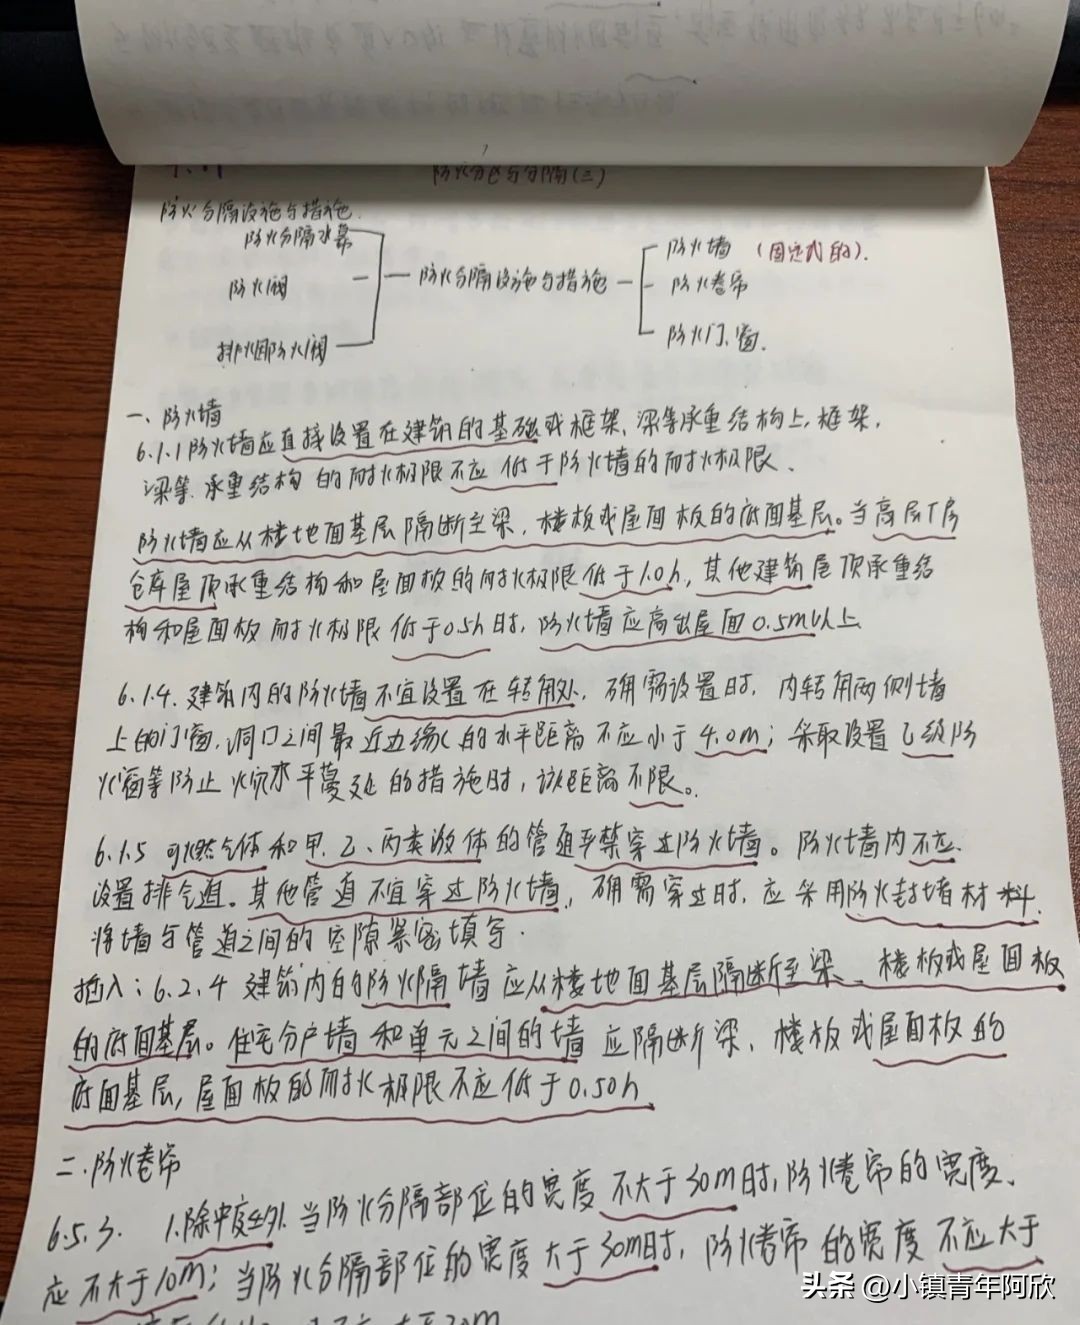 防火分区与分隔(三)
防火分隔设施与措施.
防火分隔水幕
防火阀
排烟防火阀
防火分隔设施与措施
防火墙 (固定式的).
防火卷帘
防火门、窗.
一、防火墙
6.1.1防火墙应直接设置在建筑的基础或框架、梁等承重结构上,框架,
梁等.承重结构 的耐火极限不应低于防火墙的耐火极限.
防火墙应从楼地面基层隔断至梁,楼板或屋面板的底面基层。当高层厂房
仓库屋顶承重结构和屋面板的耐火极限低于1.0h,其他建筑屋顶承重结
构和屋面板耐火极限低于0.5h时,防火墙应高出屋面0.5m以上
6.1.4.建筑内的防火墙不宜设置在转角处,确需设置时,内转角两侧墙
上的门窗,洞口之间最近边缘的水平距离不应小于4.0m;采取设置乙级防
火窗等防止火灾水平蔓延的措施时,该距离不限。
6.1.5 可燃气体和甲、乙、丙类液体的管道严禁穿过防火墙。防火墙内不应.
设置排气道。其他管道不宜穿过防火墙,确需穿过时,应采用防火封堵材料
将墙与管道之间的空隙紧密填实.
插入:6.2.4 建筑内的防火隔墙应从楼地面基层隔断至梁、楼板或屋面板
的底面基层。住宅分户墙和单元之间的墙应隔断梁、楼板或屋面板的
底面基层,屋面板的耐火极限不应低于0.50h
二.防火卷帘
6.5.3. 1.除中庭外.当防火分隔部位的宽度不大于30m时,防火卷帘的宽度.
应不大于10m;当防火分隔部位的宽度大于30m时,防火卷帘的宽度不应大于
头条@小镇青年阿欣